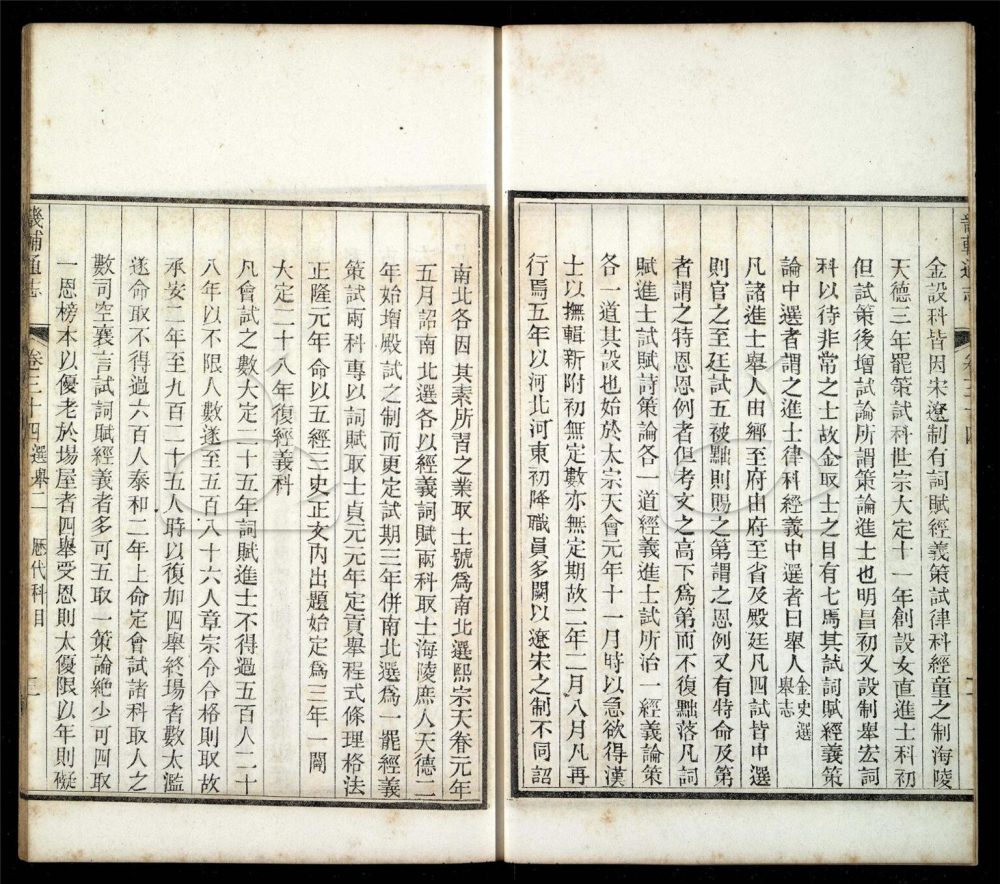 金設科皆因宋遼制有詞賦經義策試律科經童之制海陵
天德三年罷策試科世宗大定十一年創設女直進士科初
但試策後增試論所謂策論進士也明昌初又設制舉宏詞
科以待非常之士故金取士之目有七焉其試詞賦經義策
論中選者謂之進士律科經義中選者曰舉人金史選舉志
凡諸進士舉人由鄉至府由府至省及殿廷凡四試皆中選
則官之至廷試五被黜則賜之第謂之恩例又有特命及第
者謂之特恩恩例者但考文之高下為第而不復黜落凡詞
賦進士試賦詩策論各一道經義進士試所治一經義論策
各一道其設也始於太宗天會元年十一月時以急欲得漢
士以撫輯新附初無定數亦無定期故二年二月八月凡再
行焉五年以河北河東初降職員多闕以遼宋之制不同詔
畿輔通志
卷三十四 選舉二 歷代科目
南北各因其素所習之業取士號為南北選熙宗天眷元年
五月詔南北選各以經義詞賦兩科取士海陵庶人天德二
年始增殿試之制而更定試期三年併南北選為一罷經義
策試兩科專以詞賦取士貞元元年定貢舉程式條理格法
正隆元年命以五經三史正文內出題始定為三年一闢
大定二十八年復經義科
凡會試之數大定二十五年詞賦進士不得過五百人二十
八年以不限人數遂至五百八十六人章宗令合格則取故
承安二年至九百二十五人時以復加四舉終場者數太濫
遂命取不得過六百人泰和二年上命定會試諸科取人之
數司空襄言試詞賦經義者多可五取一策論絕少可四取
一恩榜本以優老於場屋者四舉受恩則太優限以年則礙